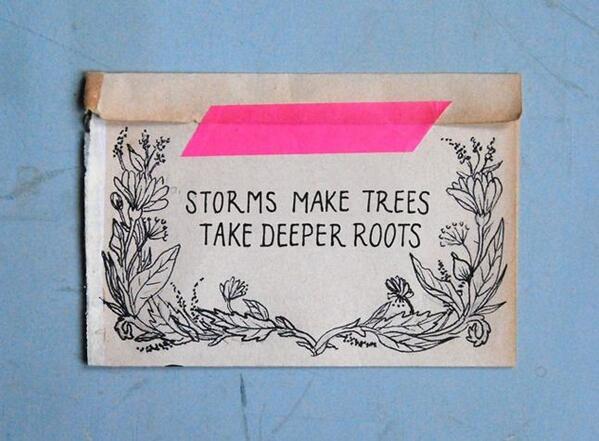 STORMS MAKE TREES
TAKE DEEPER ROOTS